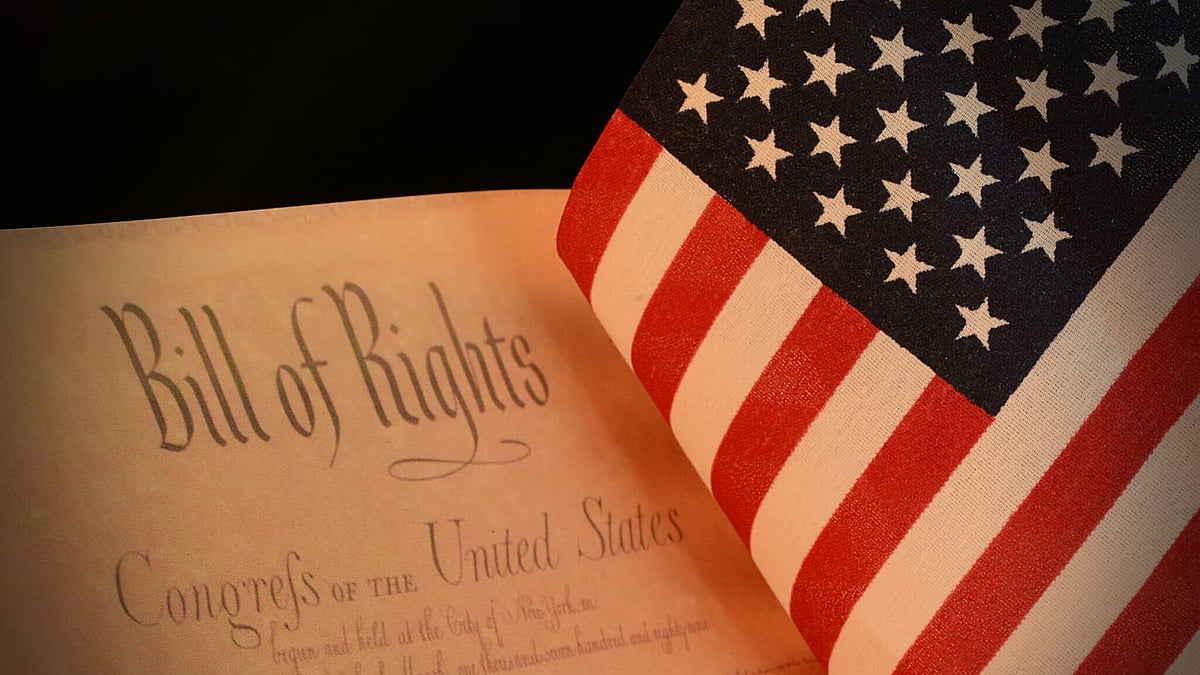 Bill of Rights
Congreſs OF THE United States
begun and held at the City of New York, on
one thousand seven hundred and eighty nine